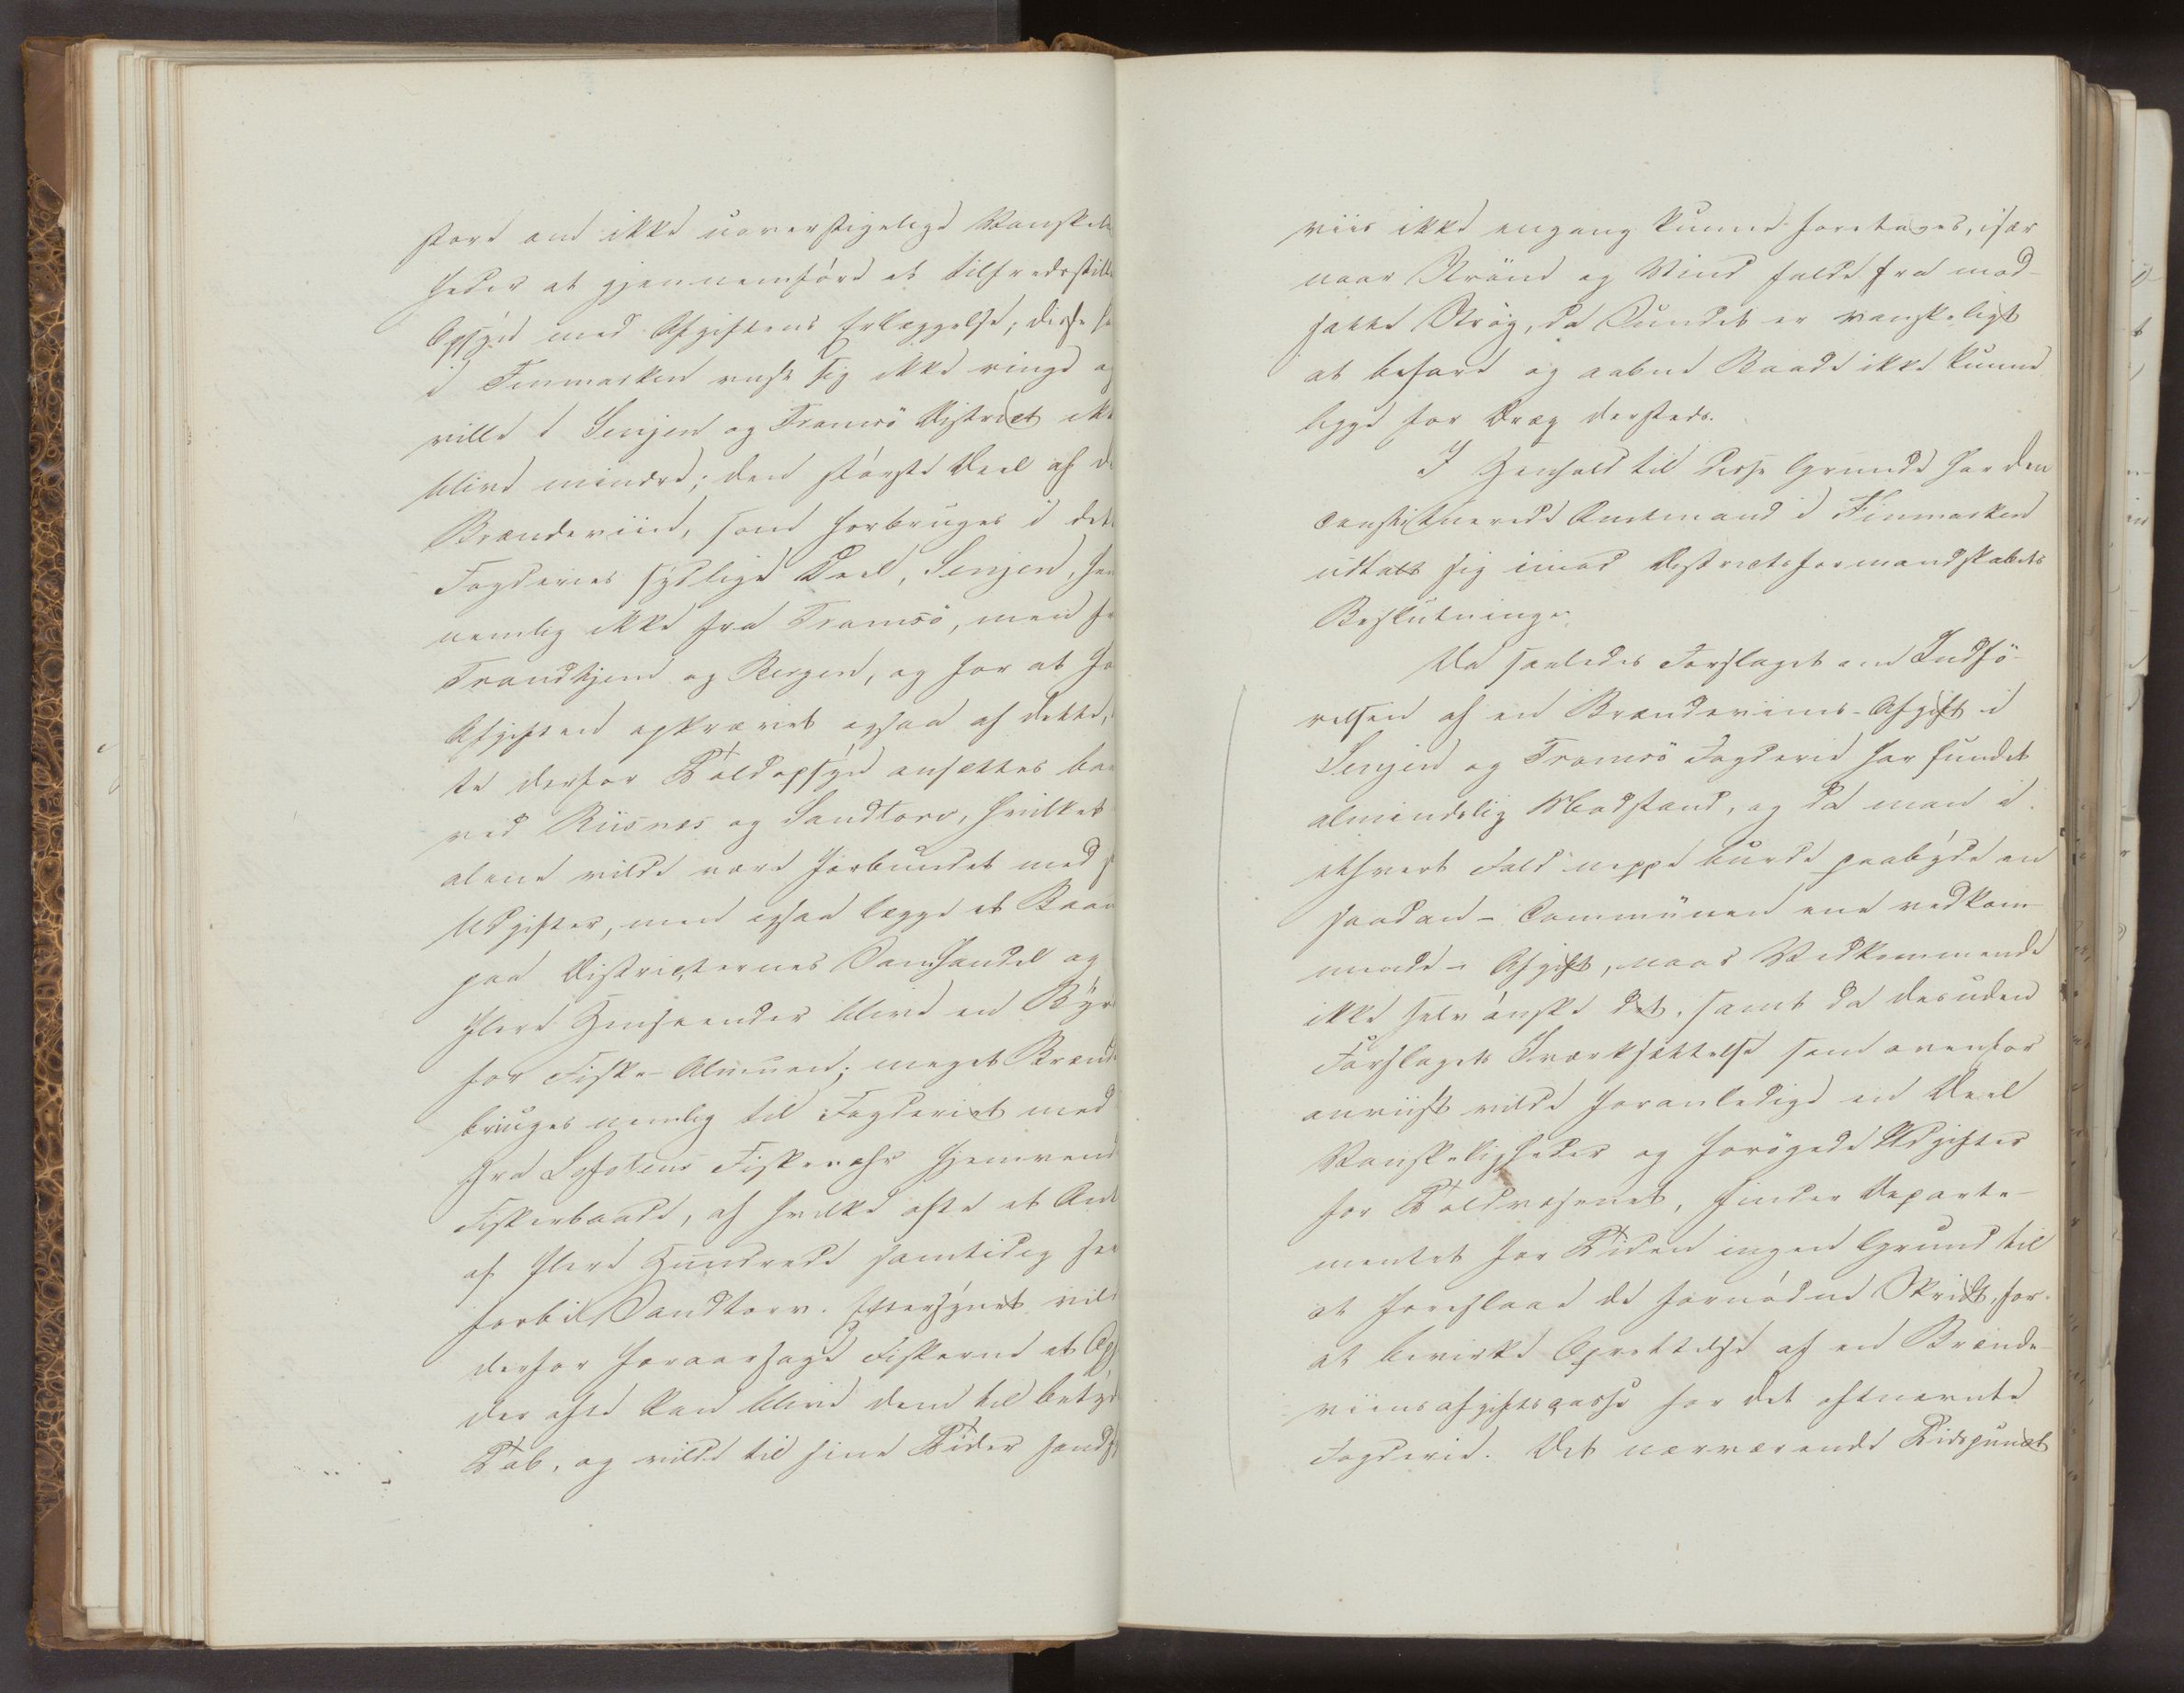 store om ikke uoverstigelige Vanskelig
heder at gjennemføre et tilfredsstille
Opsyn med Afgiftens Erlæggelse; disse ha
i Finmarken viist sig ikke ringe og
ville i Senjen og Tromsö District ikke
blive mindre; den største Deel af de
Brændeviin, som forbruges i dette
Fogderies sydlige Deel, Senjen, faa
nemlig ikke fra Tromsö, men fra
Trondhjem og Bergen, og for at faa
Afgiften opkrævet ogsaa af dette,
te derfor Toldopsyn ansættes baa
ved Riisnæs og Sandtorv, hvilket
alene vilde være forbundet med
Udgifter, men ogsaa lægge et Baan
paa Districternes Samhandel og
flere Henseender blive en Byrde
for Fiske-Almuen; meget Brænde
bringes nemlig til Fogderiet med
fra Lofotens Fiskevær hjemvend
Fiskerbaade, af hvilke ofte et Ant
af flere Hundrede samtidig
forbi Sandtorv. Eftersynet vild
derfor foraarsage Fiskerne et Op
der ofte kan blive dem til betyde
Tab, og vilde til sine Tider
viis ikke engang kunne foretages, især
naar Strøm og Vind falde fra mod-
satte Strøg, da Sundet er vanskeligt
at befare og aabne Baade ikke kunne
ligge for Dræg dersteds.
I Henhold til disse Grunde har den
constituerede Amtmand i Finmarken
udtalt sig imod Districtsformandskabets
Beslutninger.
Da saaledes Forslaget om Indfö-
relsen af en Brændeviins-Afgift i
Senjen og Tromsö Fogderie har fundet
almindelig Modstand, og da man i
ethvert Fald neppe burde paabyde en
saadan – Communen ene vedkom-
mende – Afgift, naar Vedkommende
ikke selv ønske det, samt da desuden
Forslagets Iværksættelse som ovenfor
anviist vilde foranledige en Deel
Vanskeligheder og forøgede Udgifter
for Toldvæsenet, finder Departe-
mentet for Tiden ingen Grund til
at foreslaae de fornødne Skridt for
at bevirke Oprettelse af en Brænde-
viinsafgiftscasse for det oftnævnte
Fogderie. Det nærværende Tidspunct